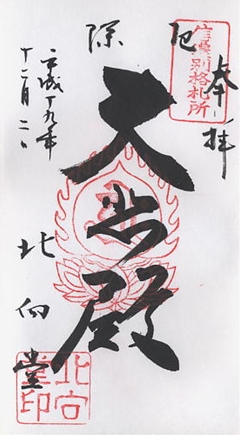 奉拝
信濃別格札所
厄除
大悲殿
北向堂
平成十九年
十二月二日
北向堂印